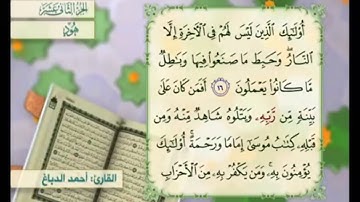 الجزء الثاني عشر
هود
أُولَٰئِكَ الَّذِينَ لَيْسَ لَهُمْ فِي الْآخِرَةِ إِلَّا
النَّارُ ۖ وَحَبِطَ مَا صَنَعُوا فِيهَا وَبَاطِلٌ
مَّا كَانُوا يَعْمَلُونَ ﴿١٦﴾ أَفَمَن كَانَ عَلَىٰ
بَيِّنَةٍ مِّن رَّبِّهِ وَيَتْلُوهُ شَاهِدٌ مِّنْهُ وَمِن
قَبْلِهِ كِتَابُ مُوسَىٰ إِمَامًا وَرَحْمَةً ۚ أُولَٰئِكَ
يُؤْمِنُونَ بِهِ ۚ وَمَن يَكْفُرْ بِهِ مِنَ الْأَحْزَابِ
القارئ: أحمد الدباغ